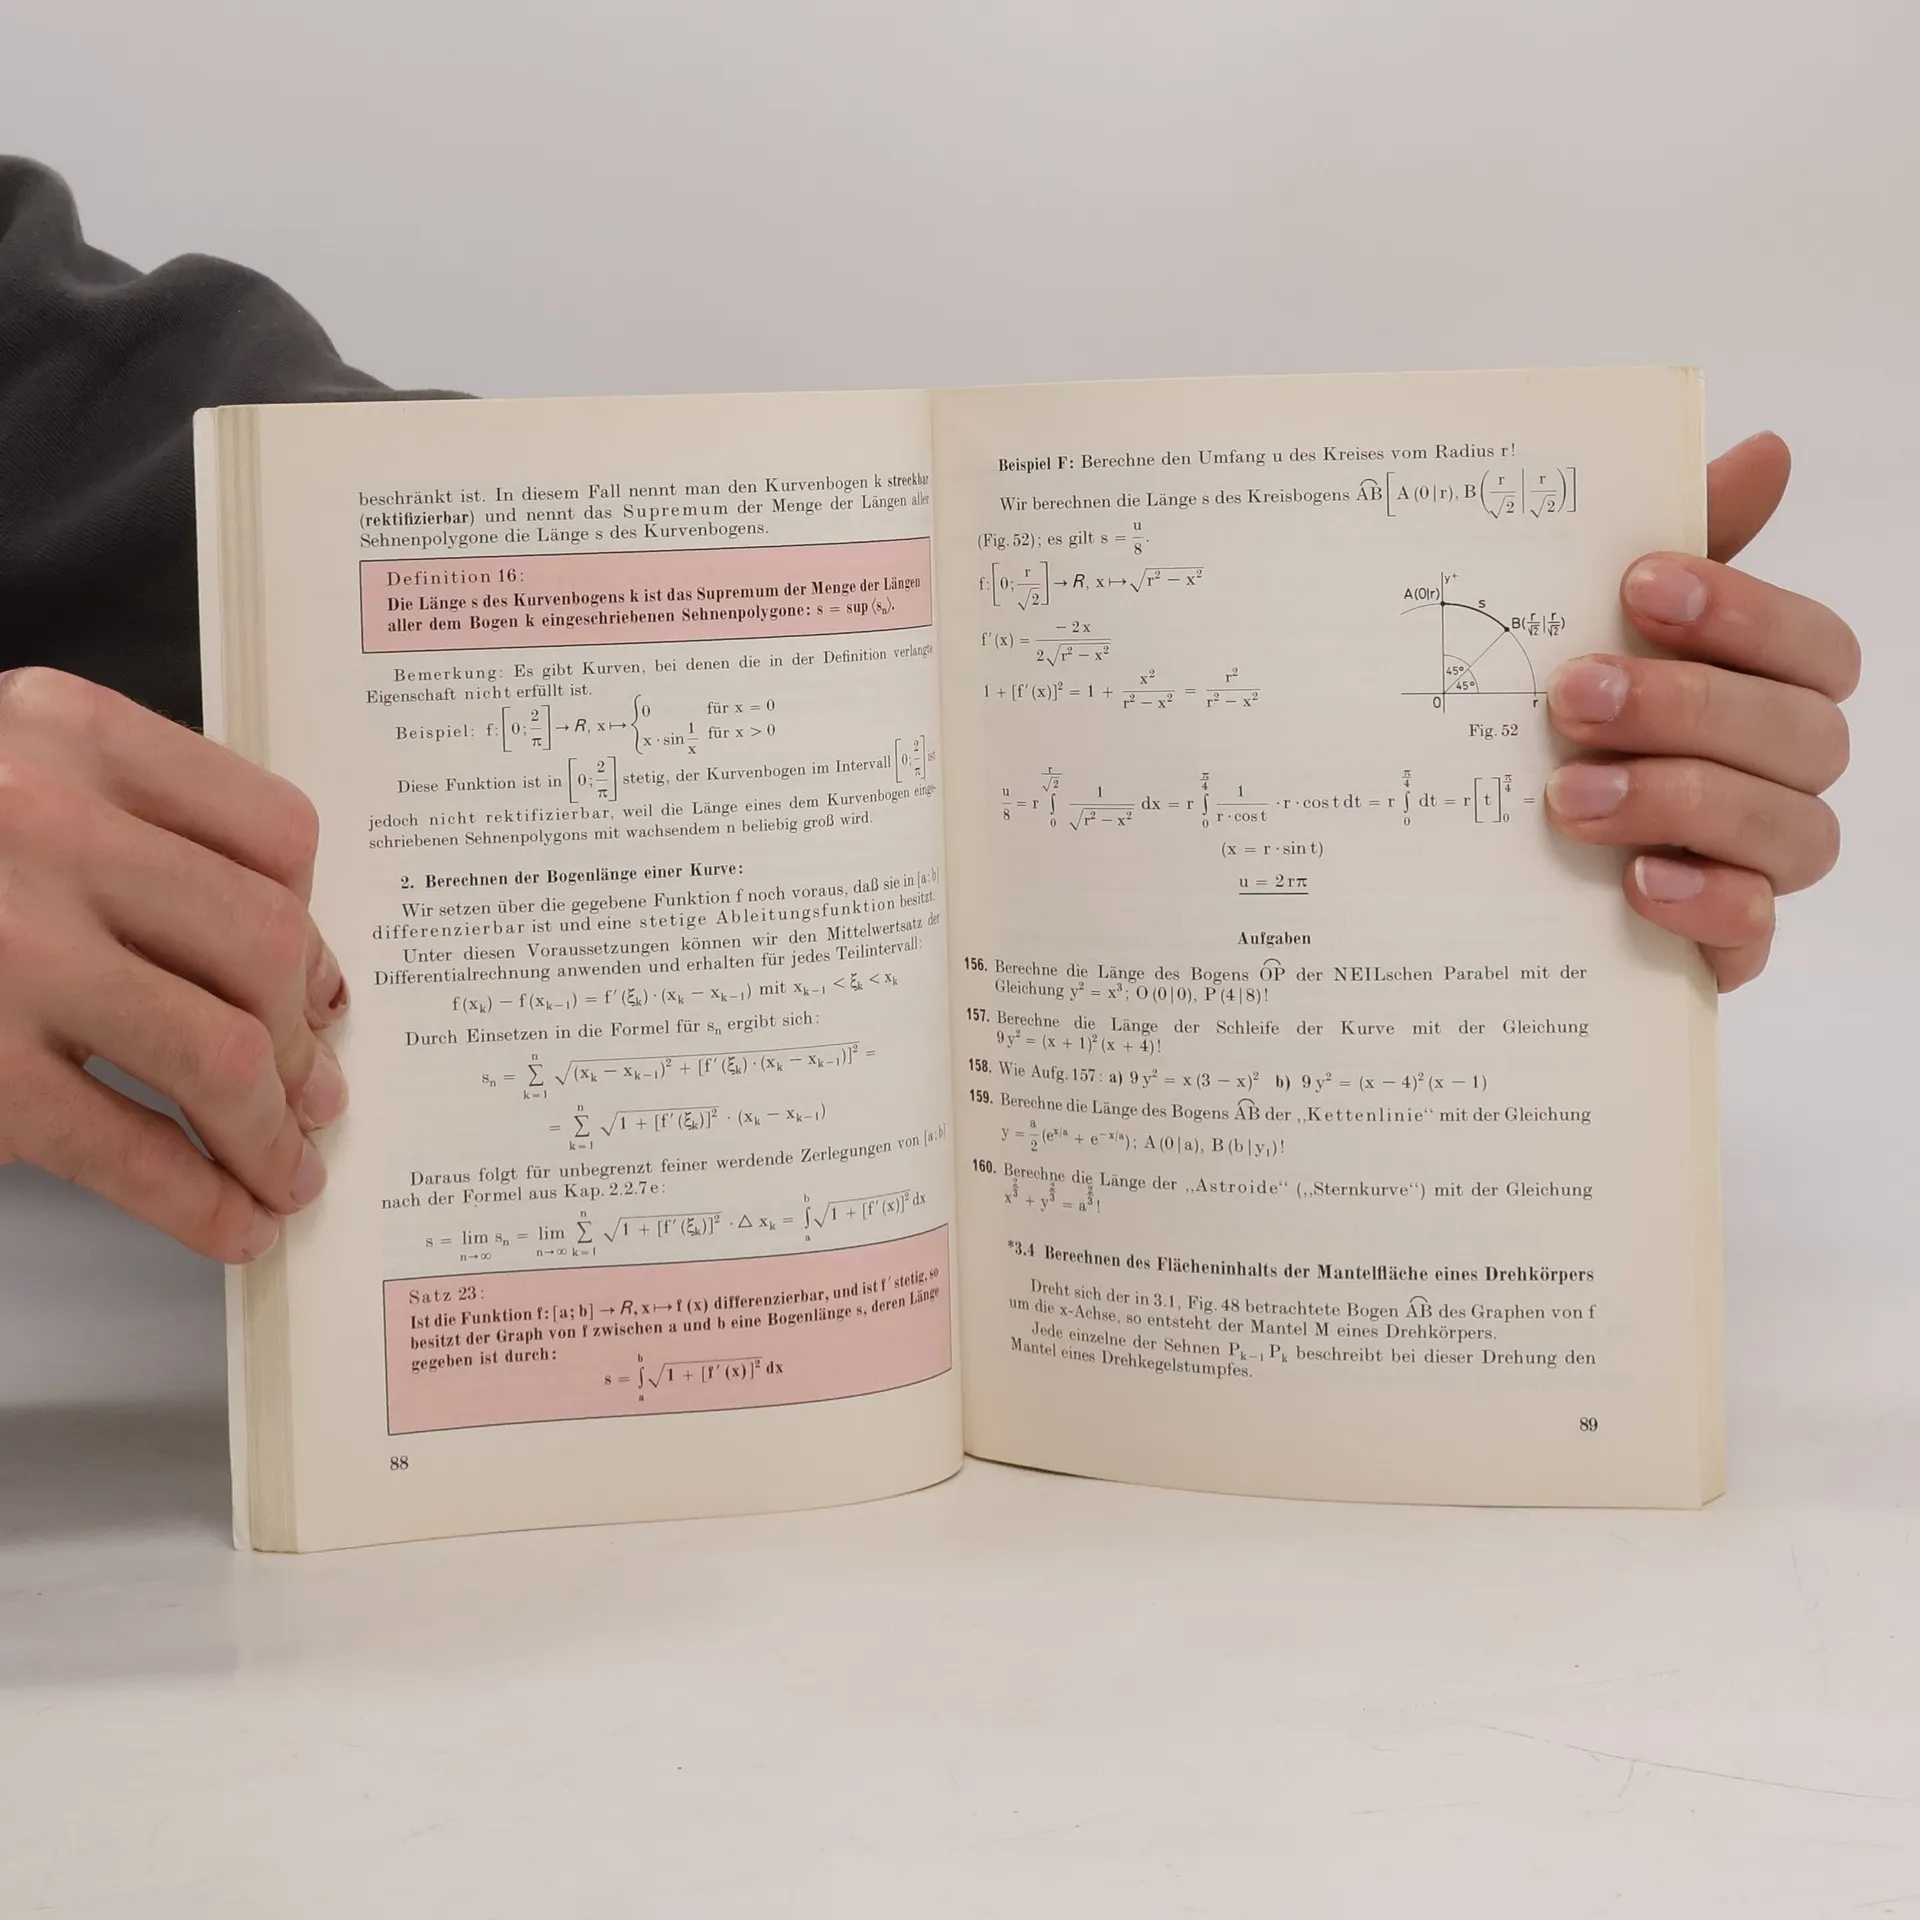 beschränkt ist. In diesem Fall nennt man den Kurvenbogen k streckbar
(rektifizierbar) und nennt das Supremum der Menge der Längen aller
Sehnenpolygone die Länge s des Kurvenbogens.
Definition 16:
Die Länge s des Kurvenbogens k ist das Supremum der Menge der Längen
aller dem Bogen k eingeschriebenen Sehnenpolygone: s = sup ⟨sₙ⟩.
Bemerkung: Es gibt Kurven, bei denen die in der Definition verlangte
Eigenschaft nicht erfüllt ist.
Beispiel: f: [0; 2/π] → R, x ↦ { 0 für x = 0
x · sin 1/x für x > 0
Diese Funktion ist in [0; 2/π] stetig, der Kurvenbogen im Intervall [0; 2/π] ist
jedoch nicht rektifizierbar, weil die Länge eines dem Kurvenbogen einge-
schriebenen Sehnenpolygons mit wachsendem n beliebig groß wird.
2. Berechnen der Bogenlänge einer Kurve:
Wir setzen über die gegebene Funktion f noch voraus, daß sie in [a; b]
differenzierbar ist und eine stetige Ableitungsfunktion besitzt.
Unter diesen Voraussetzungen können wir den Mittelwertsatz der
Differentialrechnung anwenden und erhalten für jedes Teilintervall:
f(xₖ) − f(xₖ₋₁) = f′(ξₖ) · (xₖ − xₖ₋₁) mit xₖ₋₁ < ξₖ < xₖ
Durch Einsetzen in die Formel für sₙ ergibt sich:
sₙ = Σ_{k=1}^{n} √((xₖ − xₖ₋₁)² + [f′(ξₖ) · (xₖ − xₖ₋₁)]²) =
= Σ_{k=1}^{n} √(1 + [f′(ξₖ)]²) · (xₖ − xₖ₋₁)
Daraus folgt für unbegrenzt feiner werdende Zerlegungen von [a; b]
nach der Formel aus Kap. 2.2.7e:
s = lim_{n→∞} sₙ = lim_{n→∞} Σ_{k=1}^{n} √(1 + [f′(ξₖ)]²) · Δ xₖ = ∫_a^b √(1 + [f′(x)]²) dx
Satz 23:
Ist die Funktion f: [a; b] → R, x ↦ f (x) differenzierbar, und ist f′ stetig, so
besitzt der Graph von f zwischen a und b eine Bogenlänge s, deren Länge
gegeben ist durch:
s = ∫_a^b √(1 + [f′(x)]²) dx
88
Beispiel F: Berechne den Umfang u des Kreises vom Radius r!
Wir berechnen die Länge s des Kreisbogens A͡B [A (0 | r), B (r/√2 | r/√2)]
(Fig. 52); es gilt s = u/8.
f: [0; r/√2] → R, x ↦ √(r² − x²)
f′(x) = −2x / (2√(r² − x²))
1 + [f′(x)]² = 1 + x²/(r² − x²) = r²/(r² − x²)
y+
A(0|r)
s
B(r/√2 | r/√2)
45°
45°
0
r
Fig. 52
u/8 = r ∫_0^{r/√2} 1/√(r² − x²) dx = r ∫_0^{π/4} 1/(r · cos t) · r · cos t dt = r ∫_0^{π/4} dt = r [t]_0^{π/4} =
(x = r · sin t)
u = 2 r π
Aufgaben
156. Berechne die Länge des Bogens O͡P der NEILschen Parabel mit der
Gleichung y² = x³; O (0 | 0), P (4 | 8)!
157. Berechne die Länge der Schleife der Kurve mit der Gleichung
9 y² = (x + 1)² (x + 4)!
158. Wie Aufg. 157: a) 9 y² = x (3 − x)² b) 9 y² = (x − 4)² (x − 1)
159. Berechne die Länge des Bogens A͡B der „Kettenlinie“ mit der Gleichung
y = a/2 (e^{x/a} + e^{−x/a}); A (0 | a), B (b | y₁)!
160. Berechne die Länge der „Astroide“ („Sternkurve“) mit der Gleichung
x^{2/3} + y^{2/3} = a^{2/3}!
*3.4 Berechnen des Flächeninhalts der Mantelfläche eines Drehkörpers
Dreht sich der in 3.1, Fig. 48 betrachtete Bogen A͡B des Graphen von f
um die x-Achse, so entsteht der Mantel M eines Drehkörpers.
Jede einzelne der Sehnen Pₖ₋₁ Pₖ beschreibt bei dieser Drehung den
Mantel eines Drehkegelstumpfes.
89